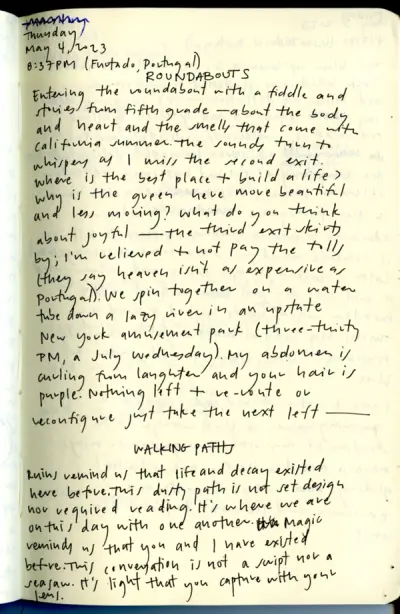 Thursday
May 4, 2023
8:37PM (Furtado, Portugal)
ROUNDABOUTS
Entering the roundabout with a fiddle and
stories from fifth grade — about the body
and heart and the smells that come with
california summer. the sounds turn to
whispers as I miss the second exit.
where is the best place + build a life?
why is the green here more beautiful
and less moving? what do you think
about joyful — the third exit skirts
by; I'm relieved + not pay the tolls
(they say heaven isn't as expensive as
Portugal). We spin together on a water
tube down a lazy river in an upstate
New York amusement park (three-thirty
PM, a July Wednesday). My abdomen is
curling from laughter and your hair is
purple. Nothing left + re-route or
reconfigure just take the next left —
WALKING PATHS
Ruins remind us that life and decay existed
here before. This dusty path is not set design
nor required reading. It's where we are
on this day with one another. Magic
reminds us that you and I have existed
before. This conversation is not a script nor a
seasaw. It's light that you capture with your
lens.